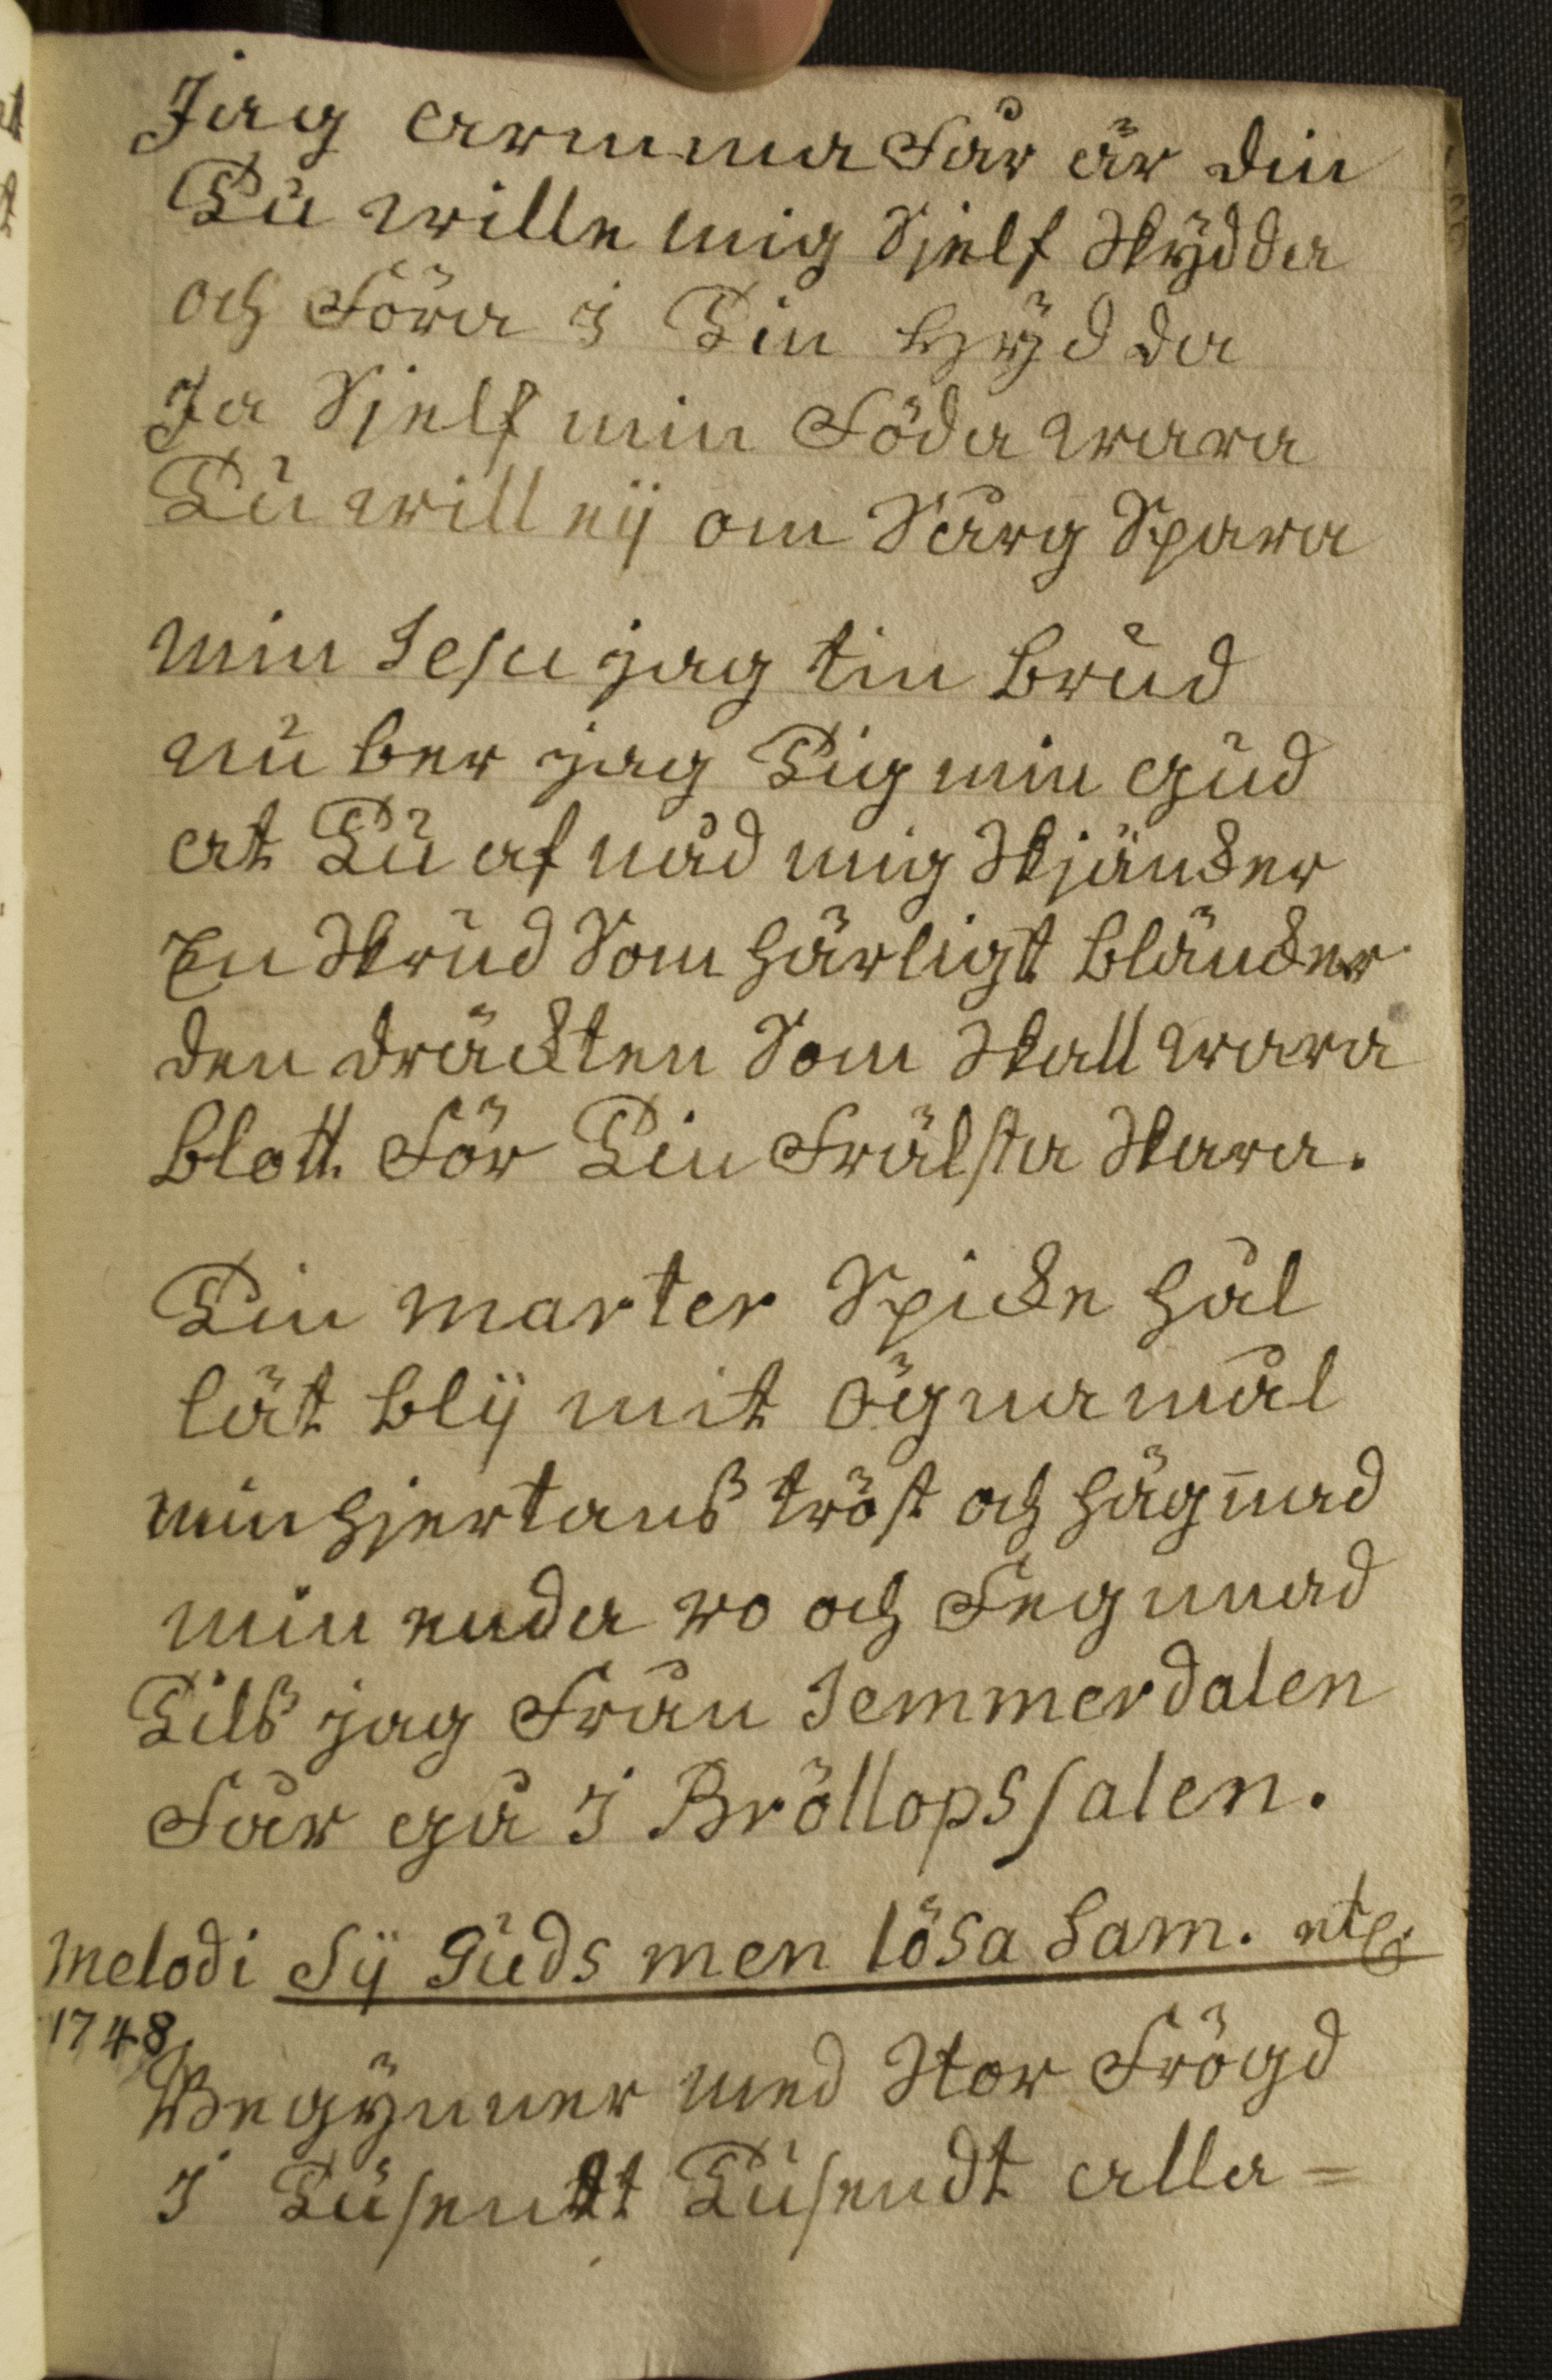 Jag arma Får är din
Tu wille mig Sjelf Skÿdda
och Föra i Tin Hÿdda
Ja Sjelf min Föda wara
Tu will eij om Sårg Spara
min Jesu jag tin brud
nu ber jag Tig min gud
at Tu af nåd mig Skjäncker
En Skrud Som härligt bläncker
den dräckten Som Skall wara
blott För Tin Frälsta Skara.
Tin marter Spicke hål
lät blij mit ögnamål
min hjertans tröst och hägnad
min enda ro och Fegnnad
Tils jag Från Jemmerdalen
Får gå I Bröllopssalen.
Melodi Sij Guds men lösa Sam. etc.
1748
Begÿnner med Stor Frögd
I Tusendt Tusendt alla=